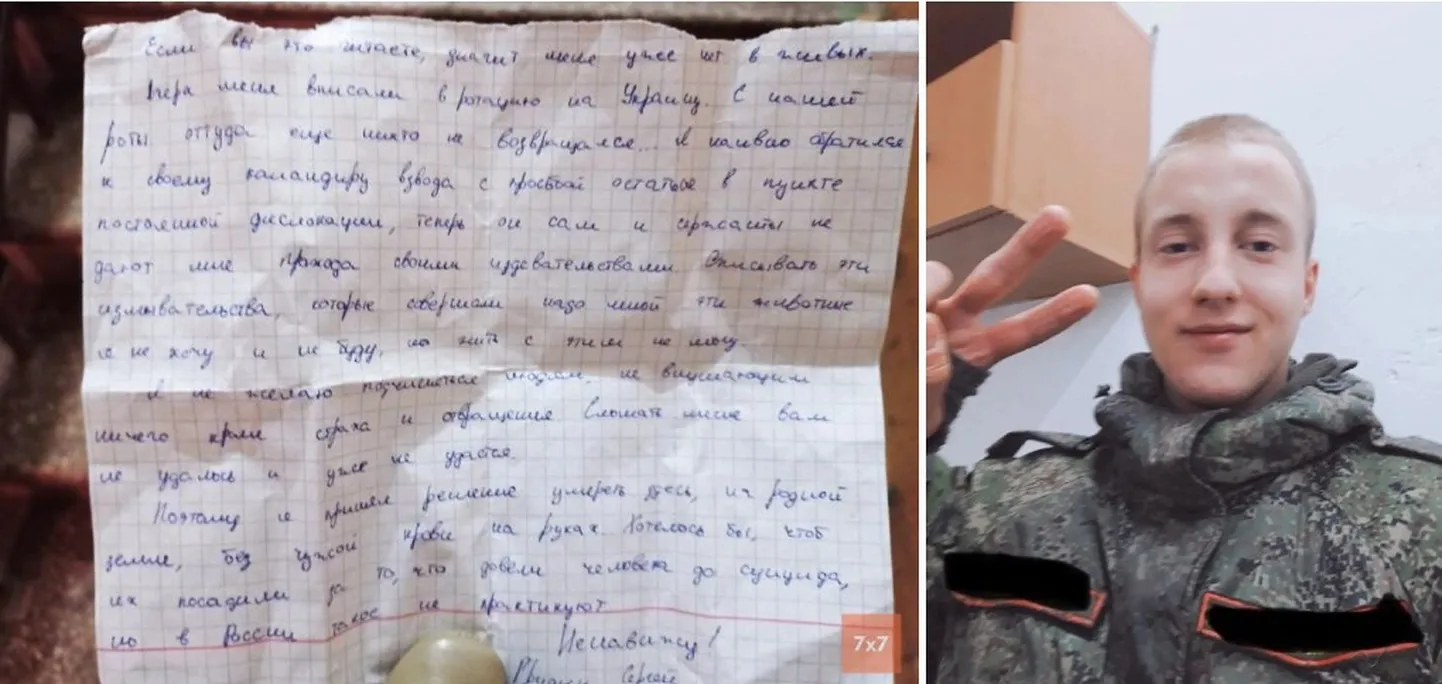 Если вы это читаете, значит меня уже нет в живых.
Вчера меня вписали в ротацию на Украину. С нашей
роты оттуда еще никто не возвращался... Я наивно обратился
к своему командиру взвода с просьбой остаться в пункте
постоянной дислокации, теперь он сам и сержанты не
дают мне прохода своими издевательствами. Описывать эти
измывательства, которые совершали надо мной эти животные
я не хочу и не буду, но жить с этим не могу.
Я не желаю подчиняться людям, не внушающим
ничего кроме страха и отвращения. Сломать меня вам
не удалось и уже не удастся.
Поэтому я принял решение умереть здесь, на родной
земле, без чужой крови на руках. Хотелось бы, чтоб
их посадили за то, что довели человека до суицида,
но в России такое не практикуют
Ненавижу!
Сергей
7x7